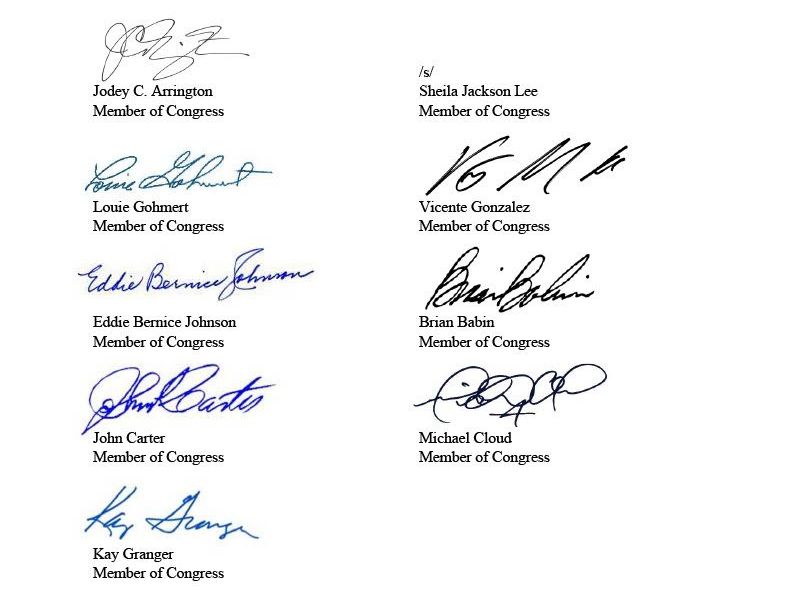 Jodey C. Arrington
Member of Congress
/s/
Sheila Jackson Lee
Member of Congress
Louie Gohmert
Louie Gohmert
Member of Congress
Vicente Gonzalez
Member of Congress
Eddie Bernice Johnson
Eddie Bernice Johnson
Member of Congress
Brian Babin
Brian Babin
Member of Congress
John Carter
John Carter
Member of Congress
Michael Cloud
Member of Congress
Kay Granger
Kay Granger
Member of Congress